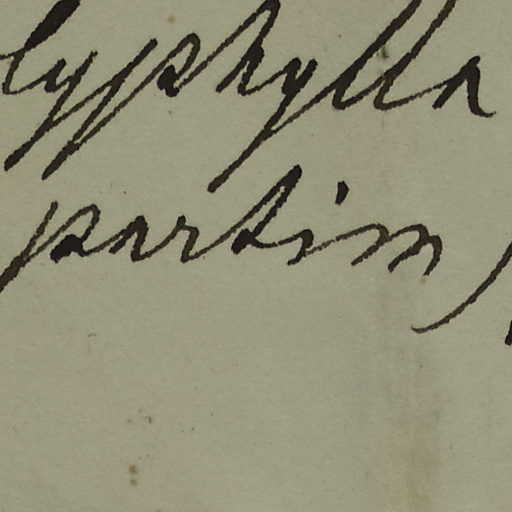 lyphylla
partim)